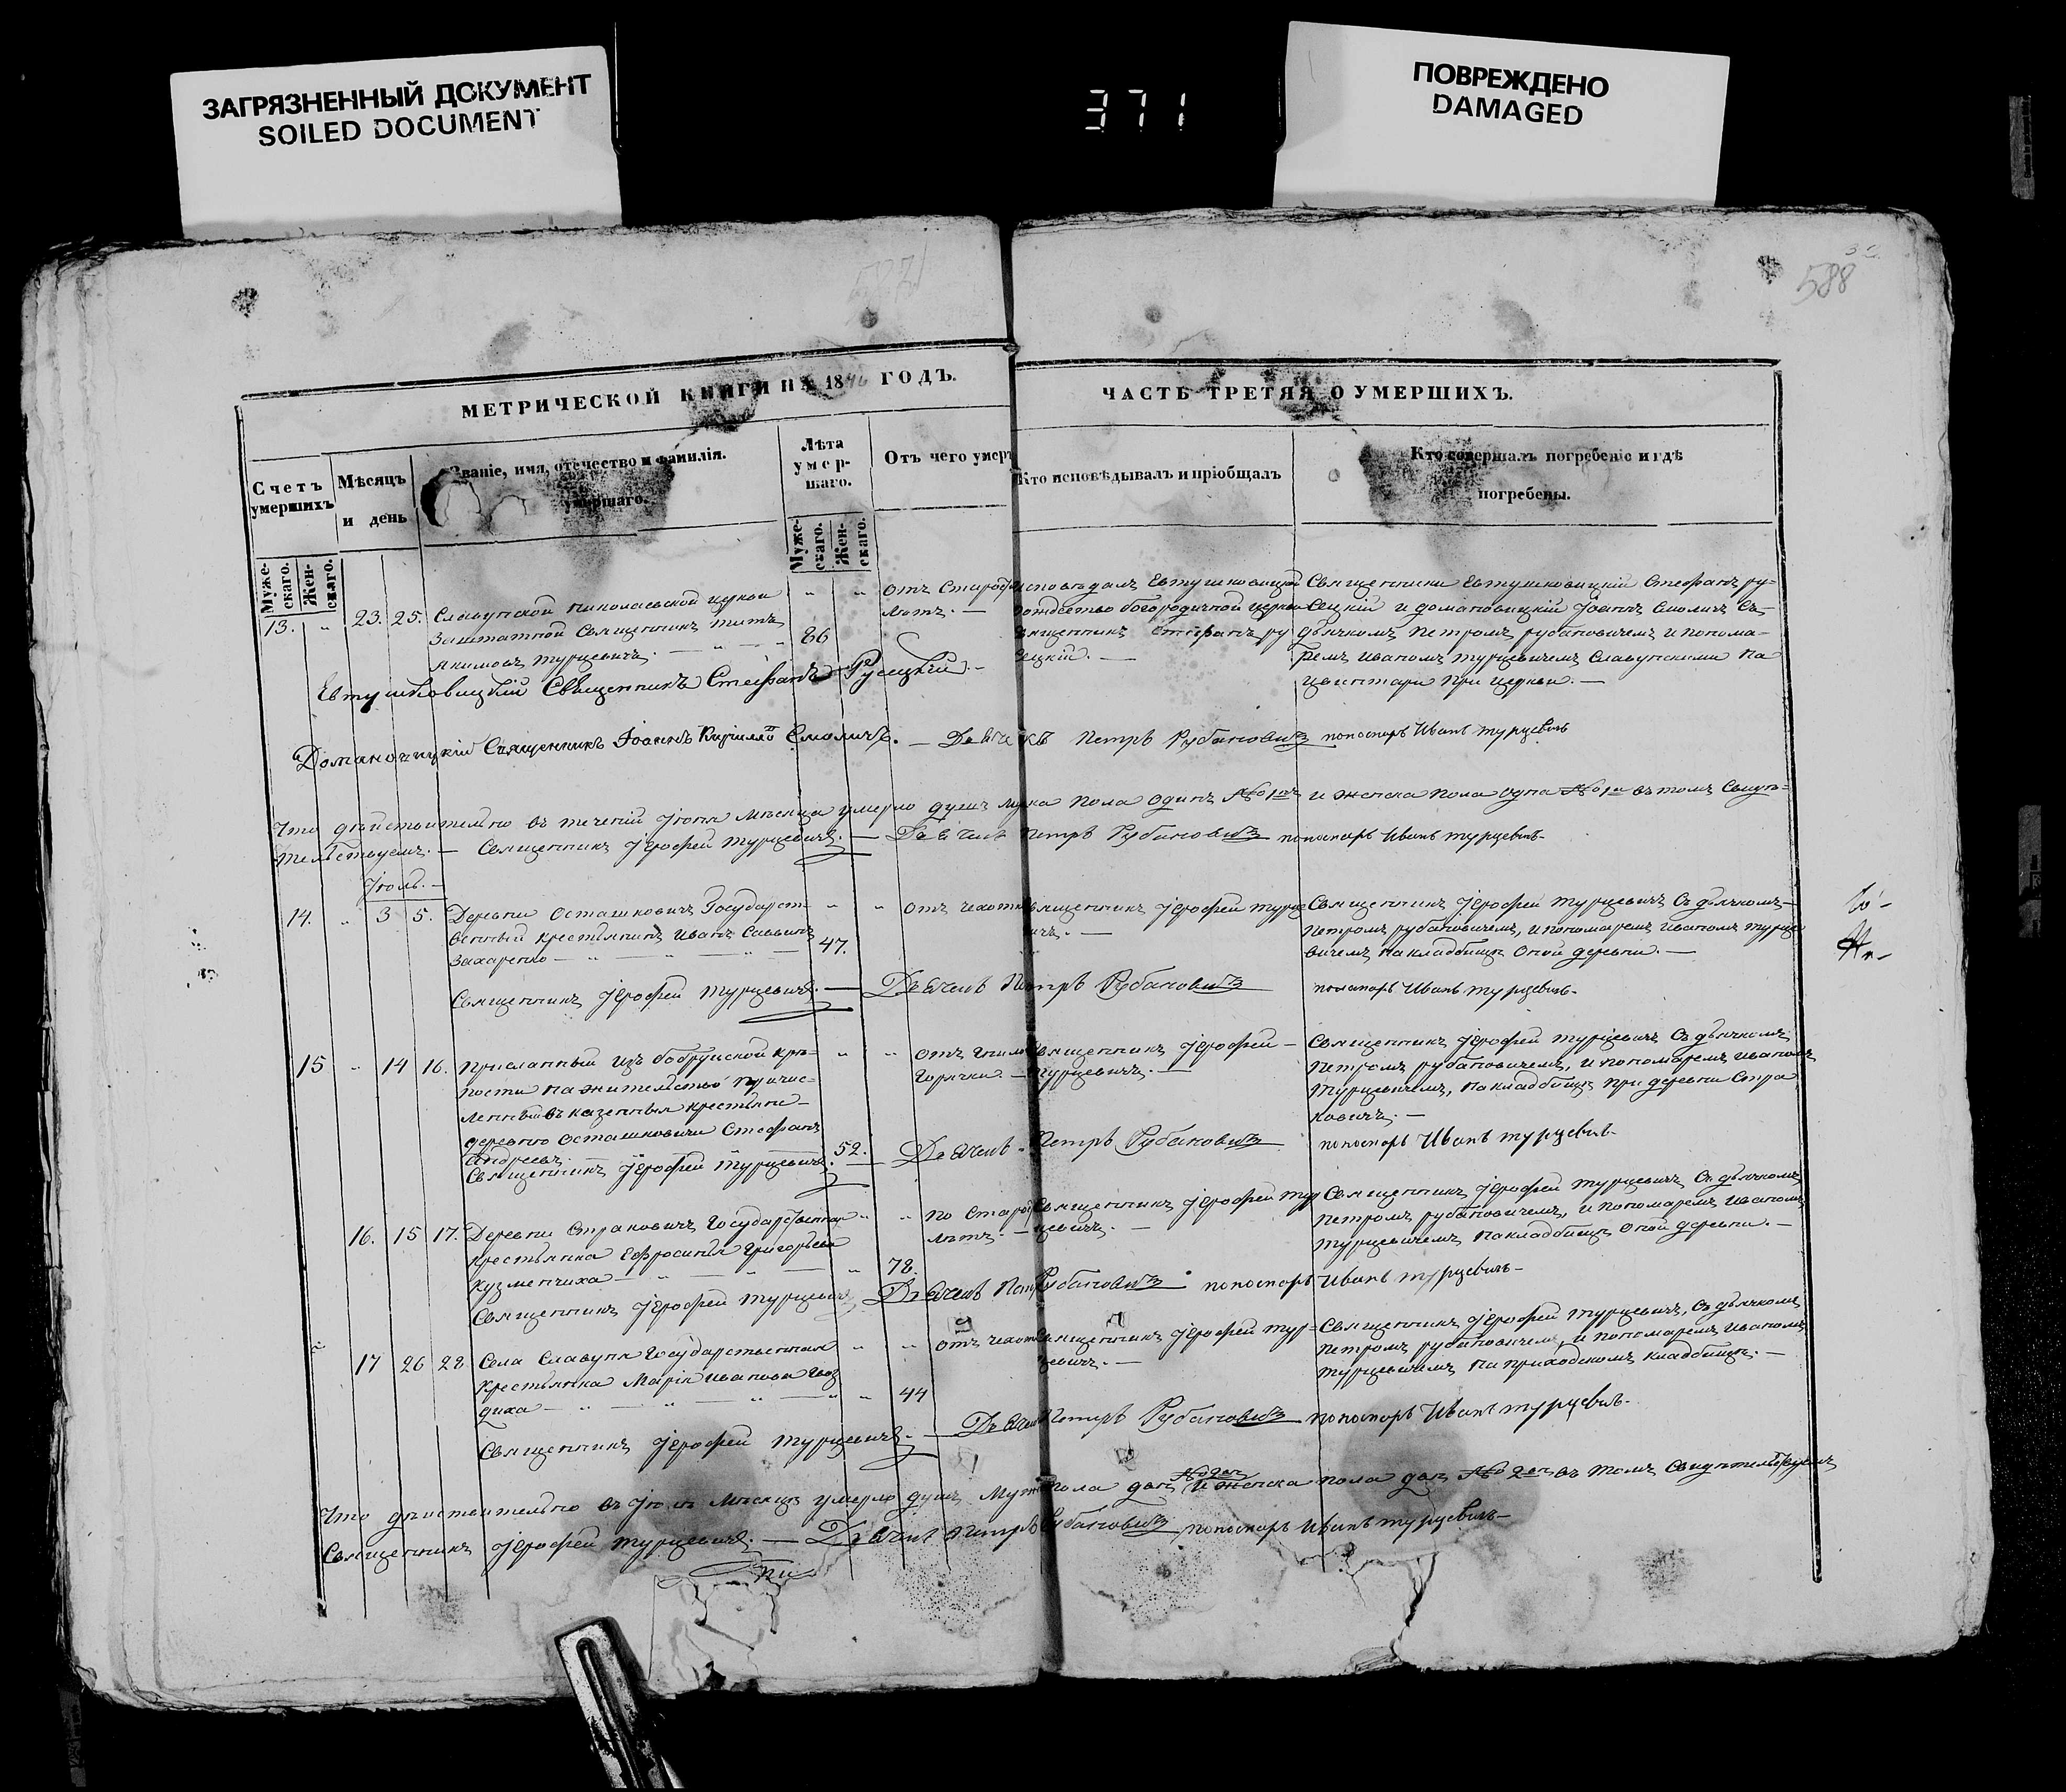 ЗАГРЯЗНЕННЫЙ ДОКУМЕНТ
SOILED DOCUMENT
371
ПОВРЕЖДЕНО
DAMAGED
588
МЕТРИЧЕСКОЙ КНИГИ НА 1846 ГОДЪ.
ЧАСТЬ ТРЕТЯЯ О УМЕРШИХЪ.
Счетъ умершихъ
Муже-скаго.
Жен-скаго.
Мѣсяцъ и день
Званіе, имя, отечество и фамилія. умершаго.
Лѣта умер-шаго.
Муже-скаго.
Жен-скаго.
Отъ чего умеръ
Кто исповѣдывалъ и пріобщалъ
Кто совершалъ погребеніе и гдѣ
погребены.
13. " 23. 25. Славунской Николаевской церкви
Заштатной Священникъ Титъ
Якимовъ Турцевичъ. 86
отъ Старости
лѣтъ. —
исповѣдалъ Евтушковицкой
рождество богородичной церкви
Священникъ Стефанъ Ру
сецкій. —
Священники Евтушковицкій Стефанъ Ру-
сецкій и домановицкій Іоаннъ Смоличъ Съ
дьячкомъ Петромъ рубановичемъ и понома-
ремъ Иваномъ турцевичемъ Славунскими На
цвинтари при церкви. —
Евтушковицкій Священникъ Стефанъ Русецкій. —
Домановицкій Священникъ Іоаннъ Смоличъ. — Дьячекъ Петръ Рубановичъ пономарь Иванъ турцевичъ
Что дѣйствительно въ теченій Іюня Мѣсяца умерло душъ мужска пола одинъ №1нъ и женска пола одна №1на въ томъ Свидѣ-
тельствуемъ. — Священникъ Іерофей Турцевичъ. — Дьячекъ Петръ Рубановичъ пономарь Иванъ турцевичъ. —
Іюль. —
14. " 3 5. Деревни Осташковичъ Государст-
венный крестьянинъ Иванъ Саввинъ
Захаренко — 47.
отъ чахотки
Священникъ Іерофей турце
вичъ. —
Священникъ Іерофей турцевичъ Съ дьячкомъ
Петромъ рубановичемъ, и пономаремъ Иваномъ турце
вичемъ на кладбищѣ Оной деревни. —
Священникъ Іерофей Турцевичъ. — Дьячекъ Петръ Рубановичъ пономарь Иванъ турцевичъ. —
15 " 14 16. Присланный изъ бобруйской крѣ-
пости на жительство причис-
ленный въ казенныя крестьяни
деревню Осташковичи Стефанъ
Андреевъ. 52.
отъ гнилой
горячки. —
Священникъ Іерофей
Турцевичъ. —
Священникъ Іерофей турцевичъ Съ дьячкомъ
Петромъ рубановичемъ, и пономаремъ Иваномъ
Турцевичемъ, на кладбищѣ при деревни Стра
ковичъ. —
Священникъ Іерофей Турцевичъ. — Дьячекъ Петръ Рубановичъ пономарь Иванъ турцевичъ. —
16. 15 17. Деревни Страковичъ Государственная
крестьянка Ефросинія Григорьева
Кузменчиха — 78.
по Старости
лѣтъ. —
Священникъ Іерофей Тур
цевичъ. —
Священникъ Іерофей турцевичъ Съ дьячкомъ
Петромъ рубановичемъ, и пономаремъ Иваномъ
турцевичемъ на кладбищѣ Оной деревни. —
Священникъ Іерофей Турцевичъ Дьячекъ Петръ Рубановичъ пономарь Иванъ турцевичъ —
17 26 28 Села Славуня Государственная
крестьянка Марія Иванова
44
отъ чахотки
Священникъ Іерофей тур-
цевичъ. —
Священникъ Іерофей Турцевичъ, Съ дьячкомъ
Петромъ рубановичемъ, и пономаремъ Иваномъ
Турцевичемъ на приходскомъ кладбищѣ. —
Священникъ Іерофей Турцевичъ. — Дьячекъ Петръ Рубановичъ пономарь Иванъ турцевичъ. —
Что дѣйствительно въ Іюлѣ Мѣсяцѣ умерло душъ Мужска пола двѣ №2ва и женска пола двѣ №2вѣ въ томъ Свидѣтельствуемъ
Священникъ Іерофей Турцевичъ. — Дьячекъ Петръ Рубановичъ пономарь Иванъ турцевичъ —